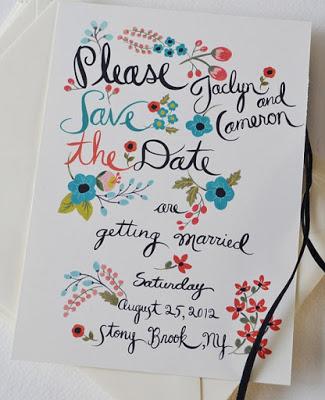 Please
Jaclyn and
Save
Cameron
the Date
are
getting married
Saturday
August 25, 2012
Stony Brook, NY